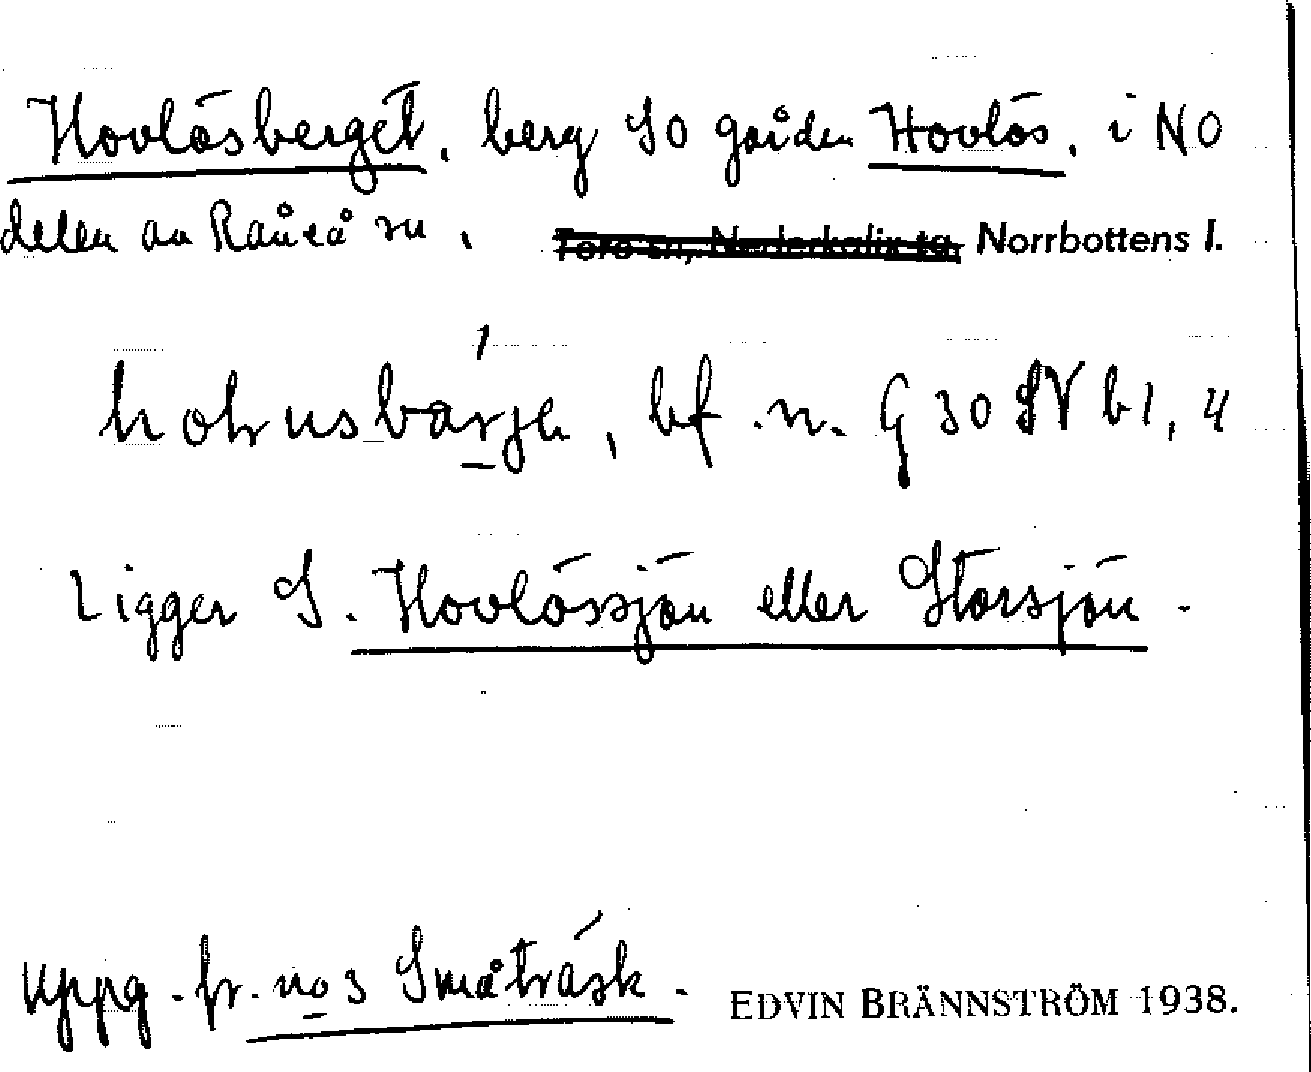 Hovlösberget, berg SO gården Hovlös, i NO
delen av Råneå sn, Töre sn, Nederkalix tg, Norrbottens l.
bf. n. G 30 SV b1, 4
Ligger S. Hovlössjön eller Storsjön.
Uppg. fr. no 3 Småträsk. EDVIN BRÄNNSTRÖM 1938.